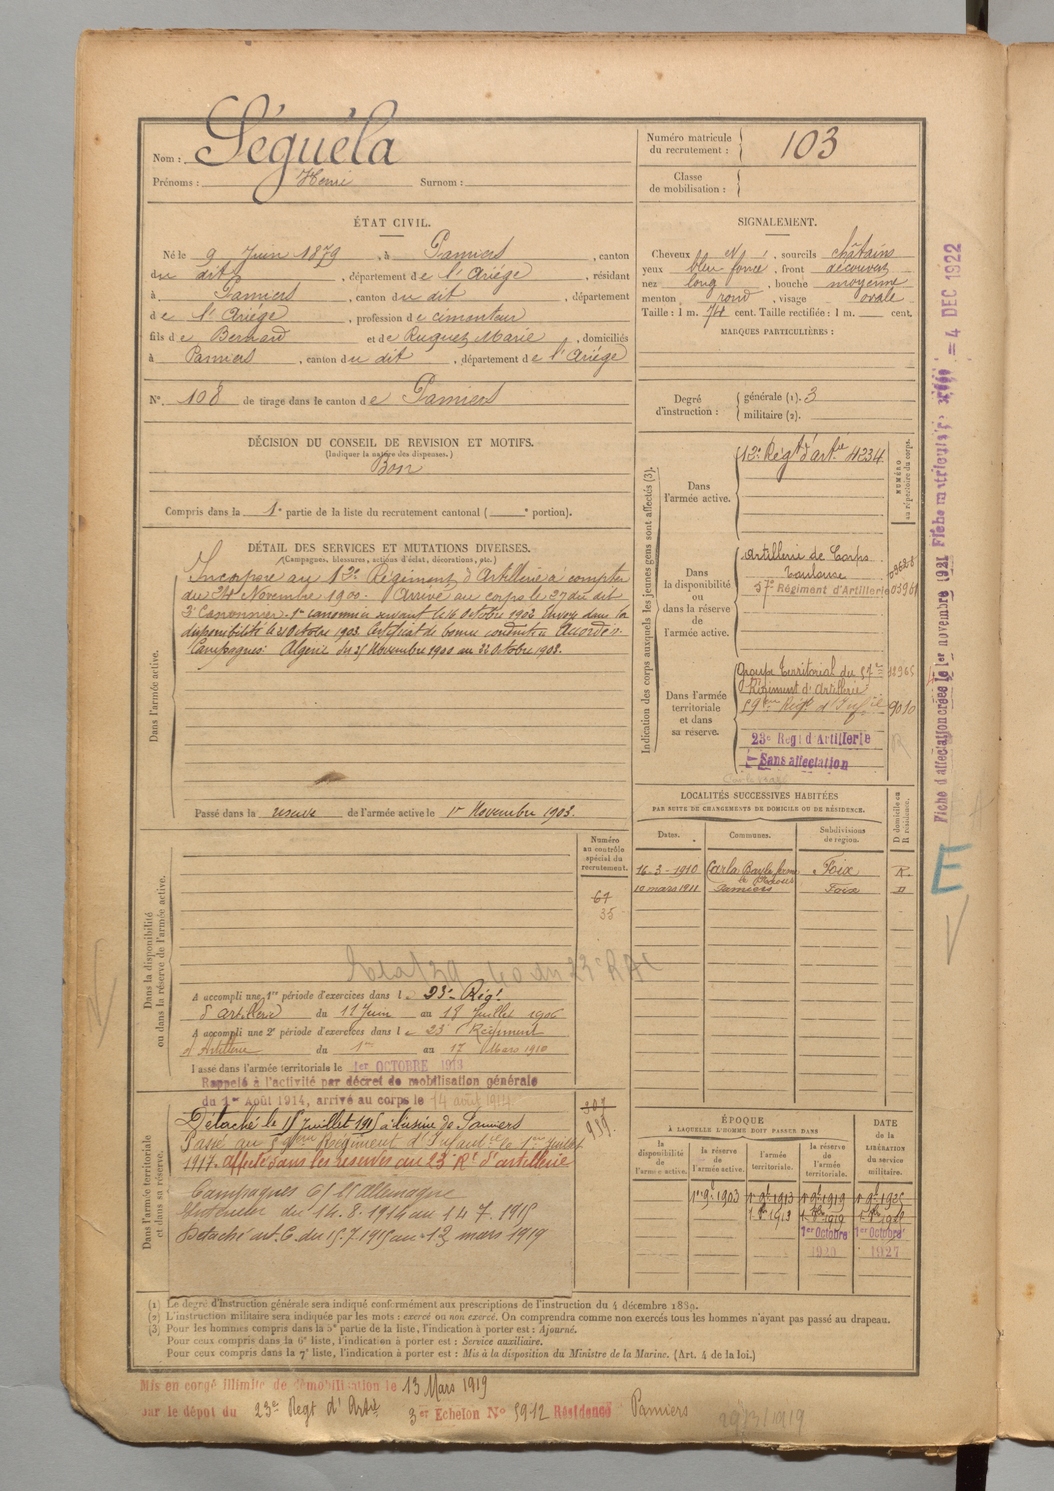 Nom : Séguéla
Prénoms : Henri Surnom :
Numéro matricule du recrutement : 103
Classe de mobilisation :
ÉTAT CIVIL.
Né le 9 Juin 1879, à Pamiers, canton
du dit, département de l'Ariège, résidant
à Pamiers, canton du dit, département
de l'Ariège, profession de cimenteur
fils de Bernard et de Ruquet Marie, domiciliés
à Pamiers, canton du dit, département de l'Ariège
N° 108 de tirage dans le canton de Pamiers
SIGNALEMENT.
Cheveux, sourcils châtains
yeux bleu foncé, front découvert
nez long, bouche moyenne
menton rond, visage ovale
Taille : 1 m. 74 cent. Taille rectifiée : 1 m. cent.
MARQUES PARTICULIÈRES :
Degré d'instruction : générale (1). 3
militaire (2).
DÉCISION DU CONSEIL DE REVISION ET MOTIFS.
(Indiquer la nature des dispenses.)
Bon
Compris dans la 1e partie de la liste du recrutement cantonal ( e portion).
DÉTAIL DES SERVICES ET MUTATIONS DIVERSES.
(Campagnes, blessures, actions d'éclat, décorations, etc.)
Dans l'armée active.
Incorporé au 12e Régiment d'Artillerie à compter
du 24 Novembre 1900. Arrivé au corps le 27 du dit
2e Canonnier. 1er canonnier servant le 16 Octobre 1902 Envoyé dans la
disponibilité le 21 Octobre 1903. Certificat de bonne conduite Accordé.
Campagnes : Algérie du 25 Novembre 1900 au 22 Octobre 1903.
Passé dans la réserve de l'armée active le 1er Novembre 1903.
Indication des corps auxquels les jeunes gens sont affectés (3).
NUMÉRO au répertoire du corps.
Dans l'armée active.
12e Régt d'artie 4234
Dans la disponibilité ou dans la réserve de l'armée active.
Artillerie de Corps
Toulouse
57e Régiment d'Artillerie
Dans l'armée territoriale et dans sa réserve.
Groupe Territorial du 57e
Régiment d'Artillerie
59ème Régt d'Infie 9010
23e Regt d'Artillerie
Sans affectation
LOCALITÉS SUCCESSIVES HABITÉES
PAR SUITE DE CHANGEMENTS DE DOMICILE OU DE RÉSIDENCE.
Dates. Communes. Subdivisions de région. D domicile ou R résidence.
16-3-1910 Carla Bayle Foix R.
10 mars 1911 Pamiers Foix D
Dans la disponibilité ou dans la réserve de l'armée active.
Numéro au contrôle spécial du recrutement.
67
35
A accompli une 1re période d'exercices dans le 23e Régt
d'artillerie du 11 Juin au 18 Juillet 1906
A accompli une 2e période d'exercices dans le 23e Régiment
d'Artillerie du 1er au 17 Mars 1910
Passé dans l'armée territoriale le 1er OCTOBRE 1913
Rappelé à l'activité par décret de mobilisation générale
du 1er Août 1914, arrivé au corps le 14 août 1914
Dans l'armée territoriale et dans sa réserve.
307
Détaché le 15 Juillet 1915 à l'usine de Pamiers
Passé au 59ème Régiment d'Infanterie le 1er Juillet
1917. affecté dans les réserves au 23e Rt d'artillerie
Campagnes C/ l'Allemagne
Intérieur du 14.8.1914 au 14.7.1915
Détaché du 15.7.1915 au 12 mars 1919
ÉPOQUE
À LAQUELLE L'HOMME DOIT PASSER DANS
la disponibilité de l'armée active. la réserve de l'armée active. l'armée territoriale. la réserve de l'armée territoriale.
DATE de la LIBÉRATION du service militaire.
1er 9b 1903 1er 9b 1913 1er 9b 1919 1er 9b 1925
1er Octobre 1er Octobre
1927
(1) Le degré d'instruction générale sera indiqué conformément aux prescriptions de l'instruction du 4 décembre 1889.
(2) L'instruction militaire sera indiquée par les mots : exercé ou non exercé. On comprendra comme non exercés tous les hommes n'ayant pas passé au drapeau.
(3) Pour les hommes compris dans la 5e partie de la liste, l'indication à porter est : Ajourné.
Pour ceux compris dans la 6e liste, l'indication à porter est : Service auxiliaire.
Pour ceux compris dans la 7e liste, l'indication à porter est : Mis à la disposition du Ministre de la Marine. (Art. 4 de la loi.)
Mis en congé illimité de démobilisation le 13 Mars 1919
par le dépôt du 23e Regt d'Artie 3er Echelon N° 5912 Résidence Pamiers
Fiche d'affectation créée le 1er novembre 1921 Fiche matricule = 4 DEC 1922
E